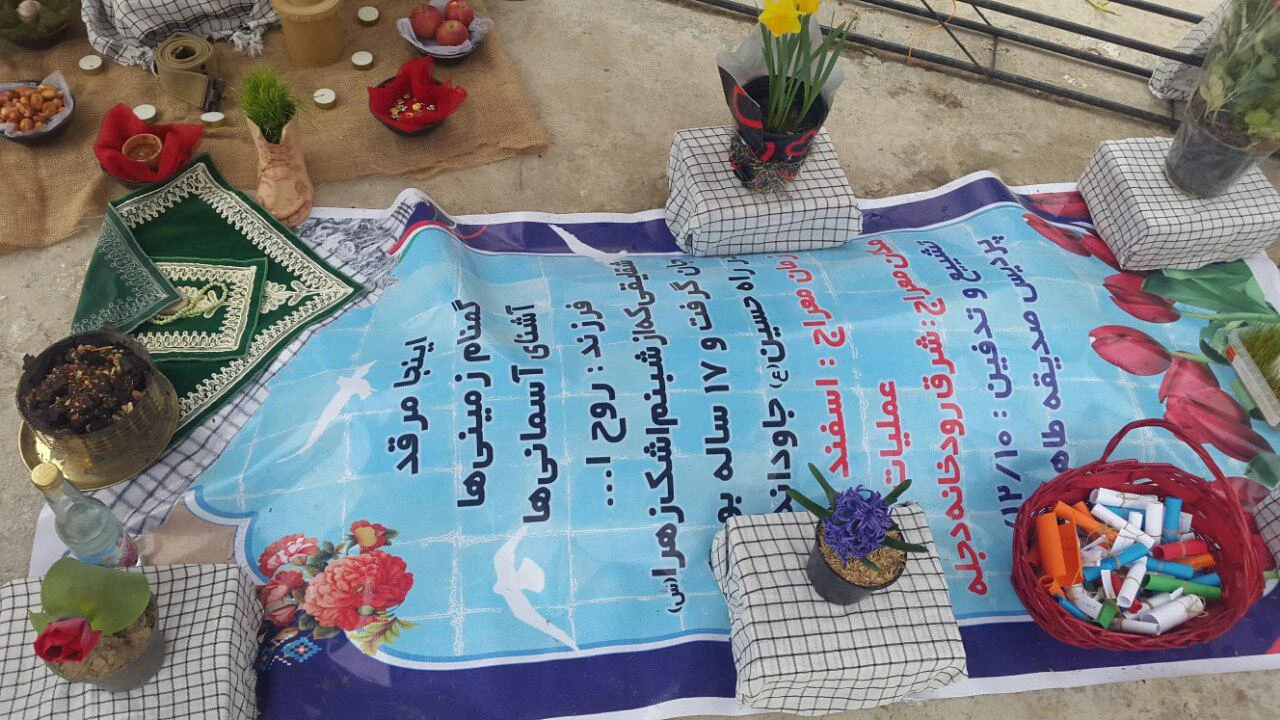 اینجا مرقد
گمنام زمینی‌ها
آشنای آسمانی‌ها
فرزند : روح ا...
شقایقی که از شبنم اشک زهرا(س)
جان گرفت و ۱۷ ساله
در راه حسین(ع) جاودانه
زمان معراج : اسفند
عملیات
مکان معراج : شرق رودخانه دجله
تشییع و تدفین :
پردیس صدیقه